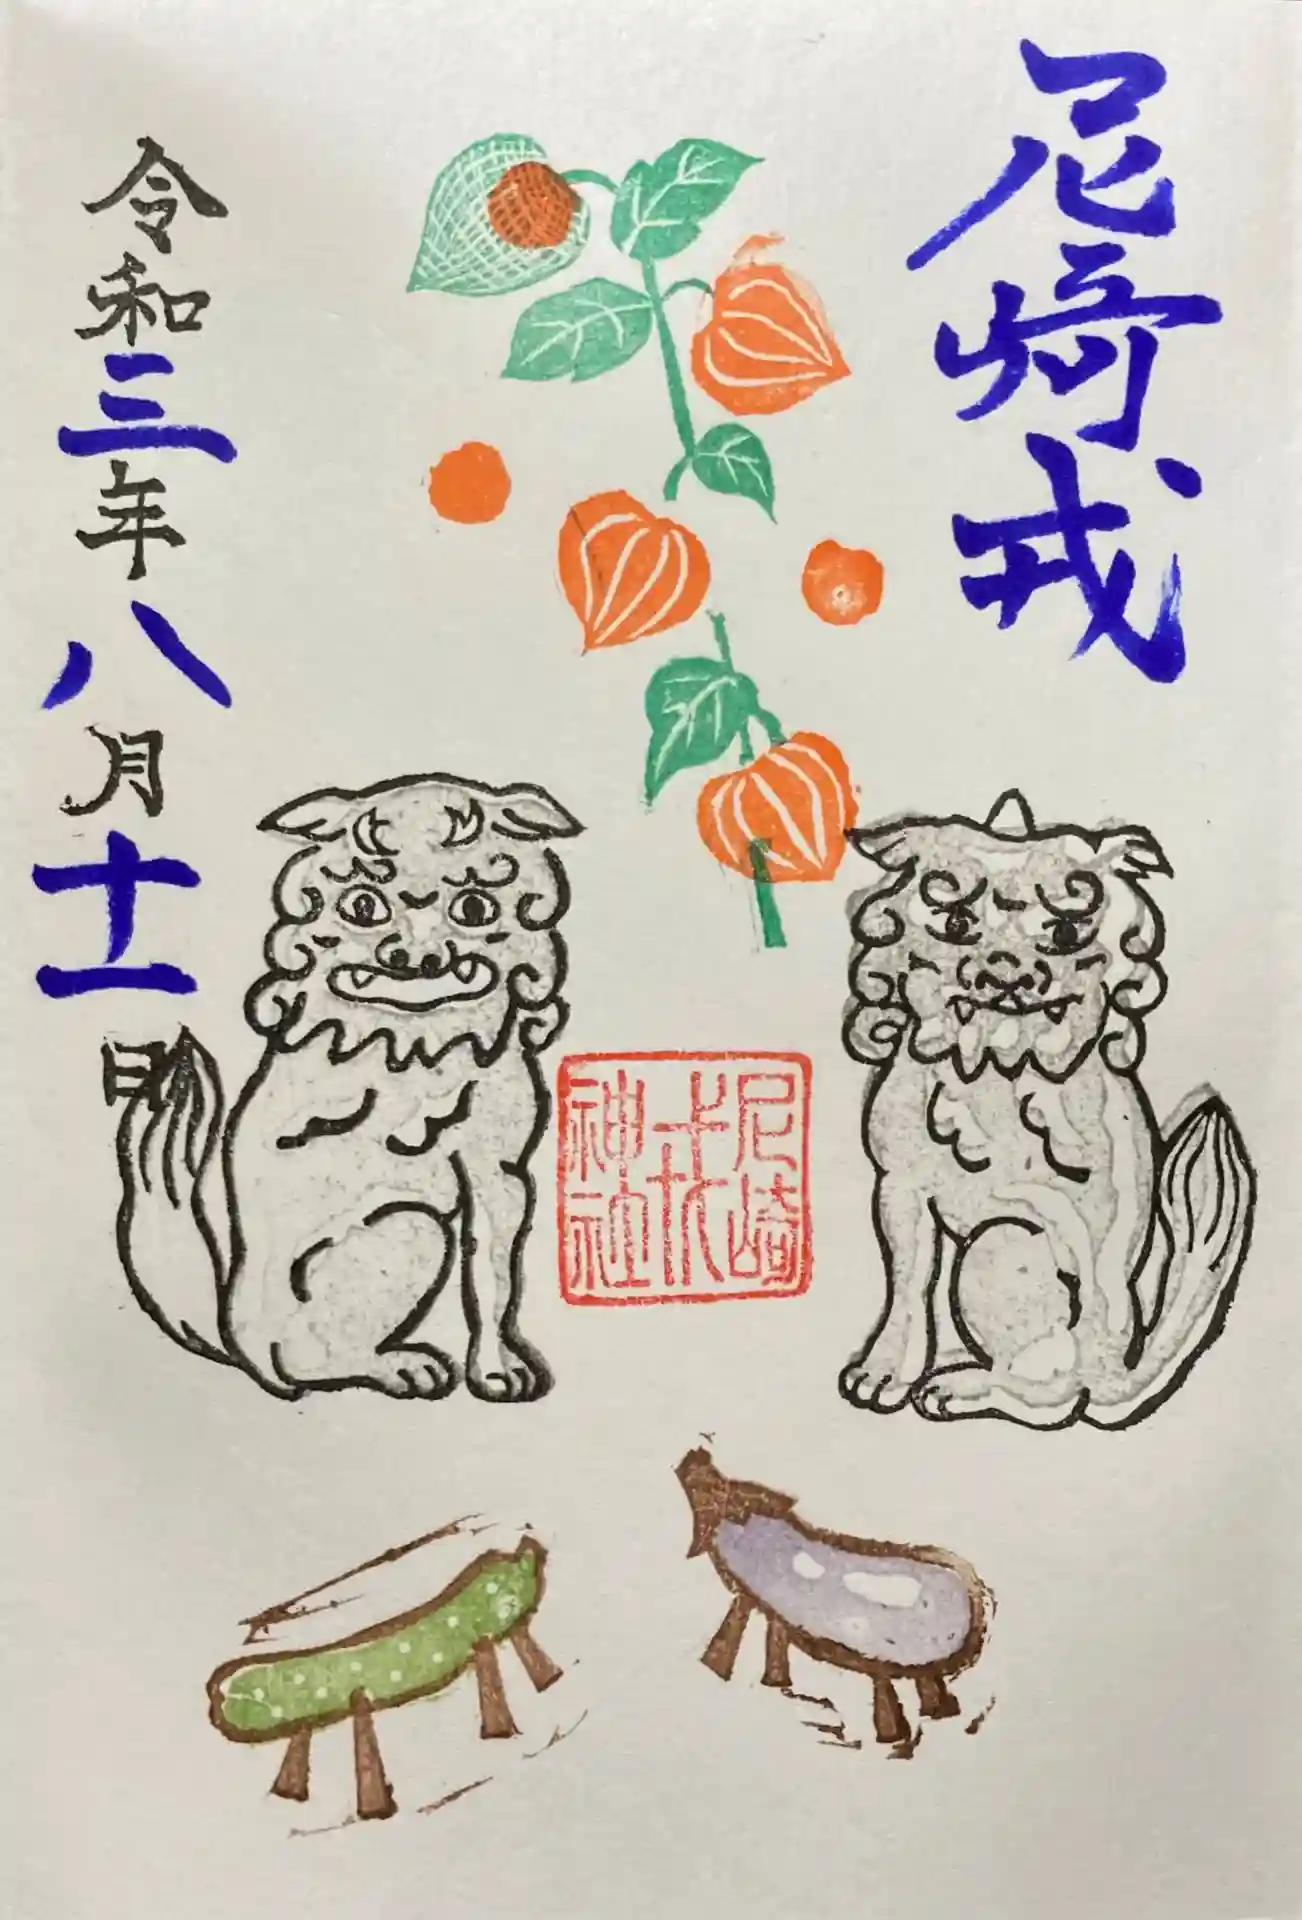 尼崎戎
尼崎
戎
神社
令和三年八月十一日